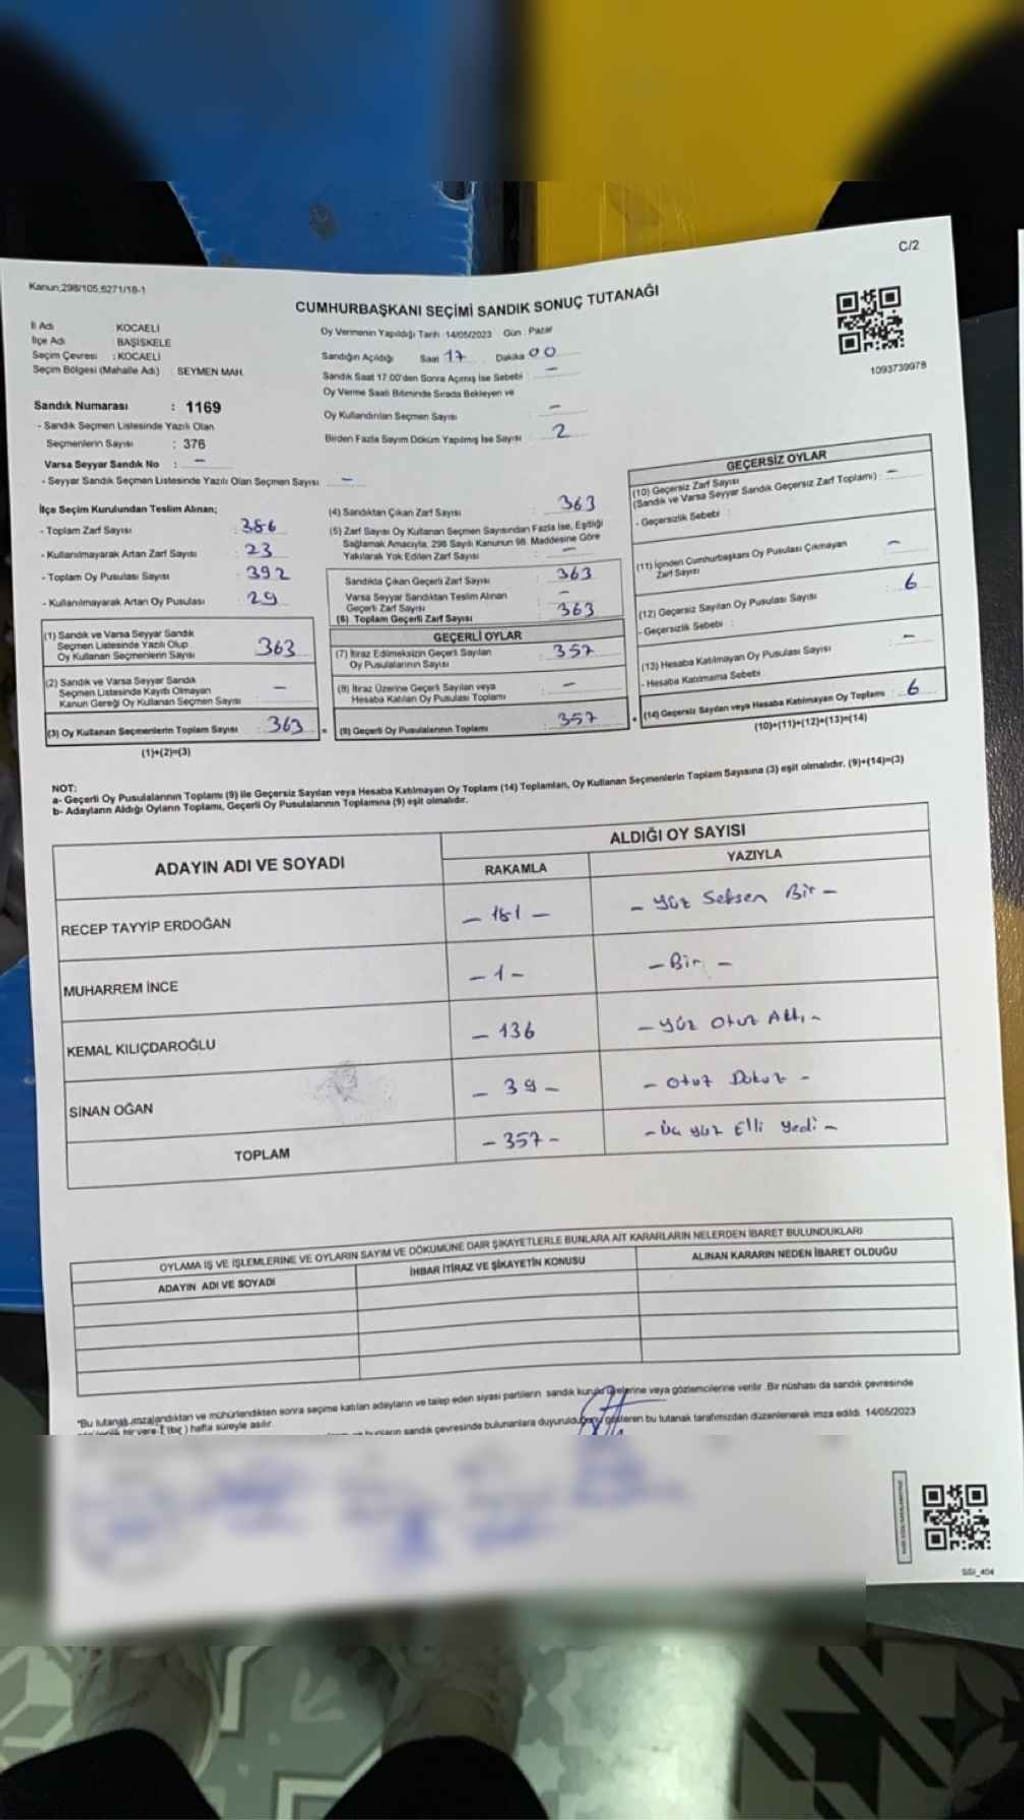 C/2
Kanun;298/105,6271/18-1
CUMHURBAŞKANI SEÇİMİ SANDIK SONUÇ TUTANAĞI
1093739978
İl Adı : KOCAELİ
İlçe Adı : BAŞİSKELE
Seçim Çevresi : KOCAELİ
Seçim Bölgesi (Mahalle Adı) : SEYMEN MAH.
Sandık Numarası : 1169
- Sandık Seçmen Listesinde Yazılı Olan
Seçmenlerin Sayısı : 376
Varsa Seyyar Sandık No : -
- Seyyar Sandık Seçmen Listesinde Yazılı Olan Seçmen Sayısı -
Oy Vermenin Yapıldığı Tarih :14/05/2023 Gün : Pazar
Sandığın Açıldığı Saat 17 Dakika 00
Sandık Saat 17.00'den Sonra Açılmış İse Sebebi : -
Oy Verme Saati Bitiminde Sırada Bekleyen ve
Oy Kullandırılan Seçmen Sayısı -
Birden Fazla Sayım Döküm Yapılmış İse Sayısı 2
İlçe Seçim Kurulundan Teslim Alınan;
- Toplam Zarf Sayısı : 386
- Kullanılmayarak Artan Zarf Sayısı : 23
- Toplam Oy Pusulası Sayısı : 392
- Kullanılmayarak Artan Oy Pusulası : 29
(1) Sandık ve Varsa Seyyar Sandık
Seçmen Listesinde Yazılı Olup
Oy Kullanan Seçmenlerin Sayısı 363
(2) Sandık ve Varsa Seyyar Sandık
Seçmen Listesinde Kayıtlı Olmayan
Kanun Gereği Oy Kullanan Seçmen Sayısı -
(3) Oy Kullanan Seçmenlerin Toplam Sayısı : 363 =
(1)+(2)=(3)
(4) Sandıktan Çıkan Zarf Sayısı : 363
(5) Zarf Sayısı Oy Kullanan Seçmen Sayısından Fazla İse, Eşitliği
Sağlamak Amacıyla, 298 Sayılı Kanunun 98. Maddesine Göre
Yakılarak Yok Edilen Zarf Sayısı : -
Sandıkta Çıkan Geçerli Zarf Sayısı : 363
Varsa Seyyar Sandıktan Teslim Alınan
Geçerli Zarf Sayısı : -
(6) Toplam Geçerli Zarf Sayısı : 363
GEÇERLİ OYLAR
(7) İtiraz Edilmeksizin Geçerli Sayılan
Oy Pusulalarının Sayısı : 357
(8) İtiraz Üzerine Geçerli Sayılan veya
Hesaba Katılan Oy Pusulası Toplamı : -
(9) Geçerli Oy Pusulalarının Toplamı : 357 +
GEÇERSİZ OYLAR
(10) Geçersiz Zarf Sayısı
(Sandık ve Varsa Seyyar Sandık Geçersiz Zarf Toplamı) : -
- Geçersizlik Sebebi :
(11) İçinden Cumhurbaşkanı Oy Pusulası Çıkmayan
Zarf Sayısı -
(12) Geçersiz Sayılan Oy Pusulası Sayısı : 6
- Geçersizlik Sebebi :
(13) Hesaba Katılmayan Oy Pusulası Sayısı : -
- Hesaba Katılmama Sebebi :
(14) Geçersiz Sayılan veya Hesaba Katılmayan Oy Toplamı : 6
(10)+(11)+(12)+(13)=(14)
NOT:
a- Geçerli Oy Pusulalarının Toplamı (9) ile Geçersiz Sayılan veya Hesaba Katılmayan Oy Toplamı (14) Toplamları, Oy Kullanan Seçmenlerin Toplam Sayısına (3) eşit olmalıdır. (9)+(14)=(3)
b- Adayların Aldığı Oyların Toplamı, Geçerli Oy Pusulalarının Toplamına (9) eşit olmalıdır.
ADAYIN ADI VE SOYADI ALDIĞI OY SAYISI
RAKAMLA YAZIYLA
RECEP TAYYİP ERDOĞAN - 181 - - Yüz Seksen Bir -
MUHARREM İNCE - 1 - - Bir -
KEMAL KILIÇDAROĞLU - 136 - Yüz Otuz Altı -
SİNAN OĞAN - 39 - - Otuz Dokuz -
TOPLAM - 357 - - Üç Yüz Elli Yedi -
OYLAMA İŞ VE İŞLEMLERİNE VE OYLARIN SAYIM VE DÖKÜMÜNE DAİR ŞİKAYETLERLE BUNLARA AİT KARARLARIN NELERDEN İBARET BULUNDUKLARI
ADAYIN ADI VE SOYADI İHBAR İTİRAZ VE ŞİKAYETİN KONUSU ALINAN KARARIN NEDEN İBARET OLDUĞU
"Bu tutanak imzalandıktan ve mühürlendikten sonra seçime katılan adayların ve talep eden siyasi partilerin sandık kurulu üyelerine veya gözlemcilerine verilir. Bir nüshası da sandık çevresinde
bir yere 1 (bir) hafta süreyle asılır.
sandık çevresinde bulunanlara duyurulduğunu gösteren bu tutanak tarafımızdan düzenlenerek imza edildi. 14/05/2023
SSI_404